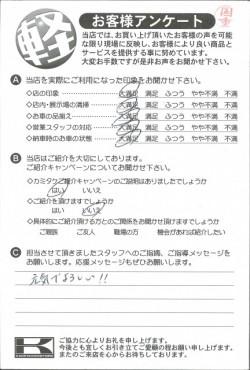 軽
お客様アンケート
当店では、お買い上げ頂いたお客様の声を可能
な限り現場に反映し、お客様により良い商品と
サービスを提供する事に努めています。
大変お手数ですが是非お声をお聞かせ下さい。
A 当店を実際にご利用になった印象をお聞かせ下さい。
◇店の印象 大満足 満足 ふつう やや不満 不満
◇店内・展示場の清掃 大満足 満足 ふつう やや不満 不満
◇お車の品揃え 大満足 満足 ふつう やや不満 不満
◇営業スタッフの対応 大満足 満足 ふつう やや不満 不満
◇納車時のお車の状態 大満足 満足 ふつう やや不満 不満
B 当店はご紹介を大切にしております。
ご紹介キャンペーンについてお聞かせ下さい。
◇カミタケご紹介キャンペーンのご説明はありましたでしょうか
はい いいえ
◇ご紹介を頂けますでしょうか
はい いいえ
◇具体的にご紹介頂ける方とのご関係をお聞かせ頂けますでしょうか
ご親戚 ご友人 職場の方 機会があれば紹介したい
C 担当させて頂きましたスタッフへのご指摘、ご指導メッセージを
お願いします。応援メッセージもぜひお願いします。
元気でよろしい!!
K
ご協力に心よりお礼を申し上げます。
今後とも宜しくお引き立てご愛顧の程お願い申し上げます。
またのご来店を心からお待ちしております。